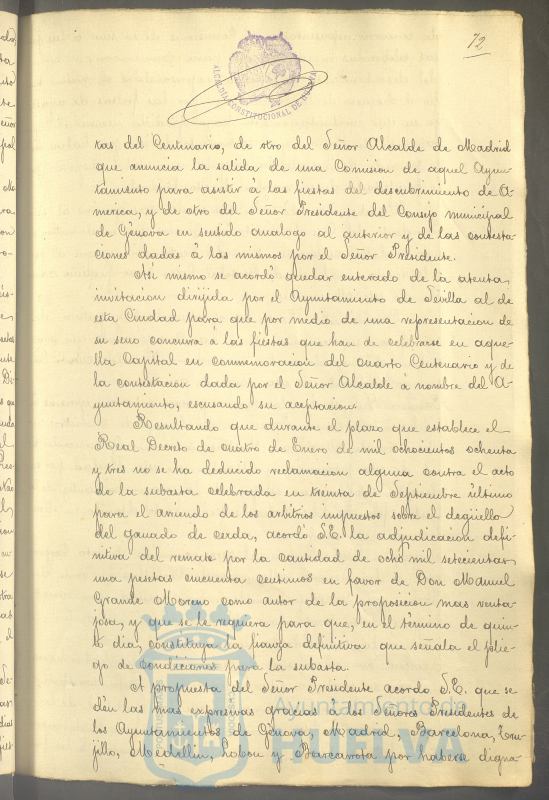 72
ALCALDIA CONSTITUCIONAL DE HUELVA
tas del Centenario, de otro del Señor Alcalde de Madrid
que anuncia la salida de una Comision de aquel Ayun-
tamiento para asistir á las fiestas del descubrimiento de A-
merica, y de otro del Señor Presidente del Consejo municipal
de Génova en sentido analogo al anterior y de las contesta-
ciones dadas á las mismos por el Señor Presidente.
Asi mismo se acordó quedar enterado de la atenta
invitacion dirijida por el Ayuntamiento de Sevilla al de
esta Ciudad para que por medio de una representacion de
su seno concurra á las fiestas que han de celebrarse en aque-
lla Capital en conmemoracion del cuarto Centenario y de
la contestacion dada por el Señor Alcalde á nombre del A-
yuntamiento, escusando su aceptacion.
Resultando que durante el plazo que establece el
Real Decreto de cuatro de Enero de mil ochocientos ochenta
y tres no se ha deducido reclamacion alguna contra el acto
de la subasta celebrada en treinta de Septiembre último
para el arriendo de los arbitrios impuestos sobre el degüello
del ganado de cerda, acordó S.E. la adjudicacion defi-
nitiva del remate por la cantidad de ocho mil setecientas
una pesetas cincuenta centimos en favor de Don Manuel
Grande Moreno como autor de la proposicion mas venta-
josa, y que se le requiera para que, en el término de quin-
to dia, constituya la fianza definitiva que señala el plie-
go de condiciones para la subasta.
A propuesta del Señor Presidente acordó S.E. que se
dén las mas expresivas gracias á los Señores Presidentes de
los Ayuntamientos de Génova, Madrid, Barcelona, Tru-
jillo, Medellin, Lobon y Barcarrota por haberse digna-
Ayuntamiento de
HUELVA